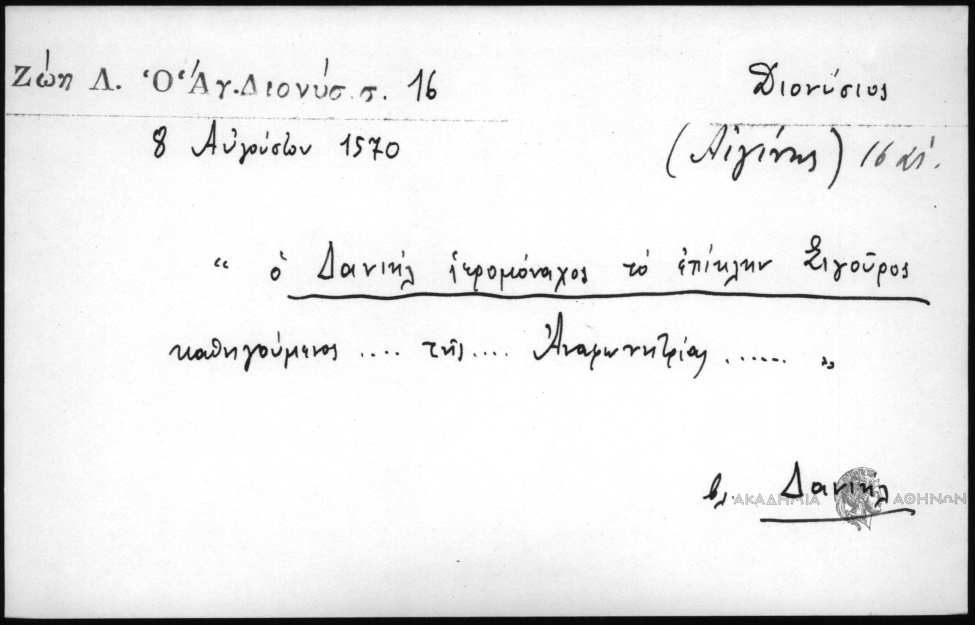 Ζώη Λ. Ὁ Ἅγ. Διονύσ. σ. 16
Διονύσιος
8 Αὐγούστου 1570
(Αἰγίνης) 16 αἰ.
“ ὁ Δανιήλ ἱερομόναχος τό ἐπίκλην Σιγοῦρος
καθηγούμενος .... τῆς .... Ἀναφωνητρίας ...... „
βλ. Δανιήλ
ΑΚΑΔΗΜΙΑ ΑΘΗΝΩΝ